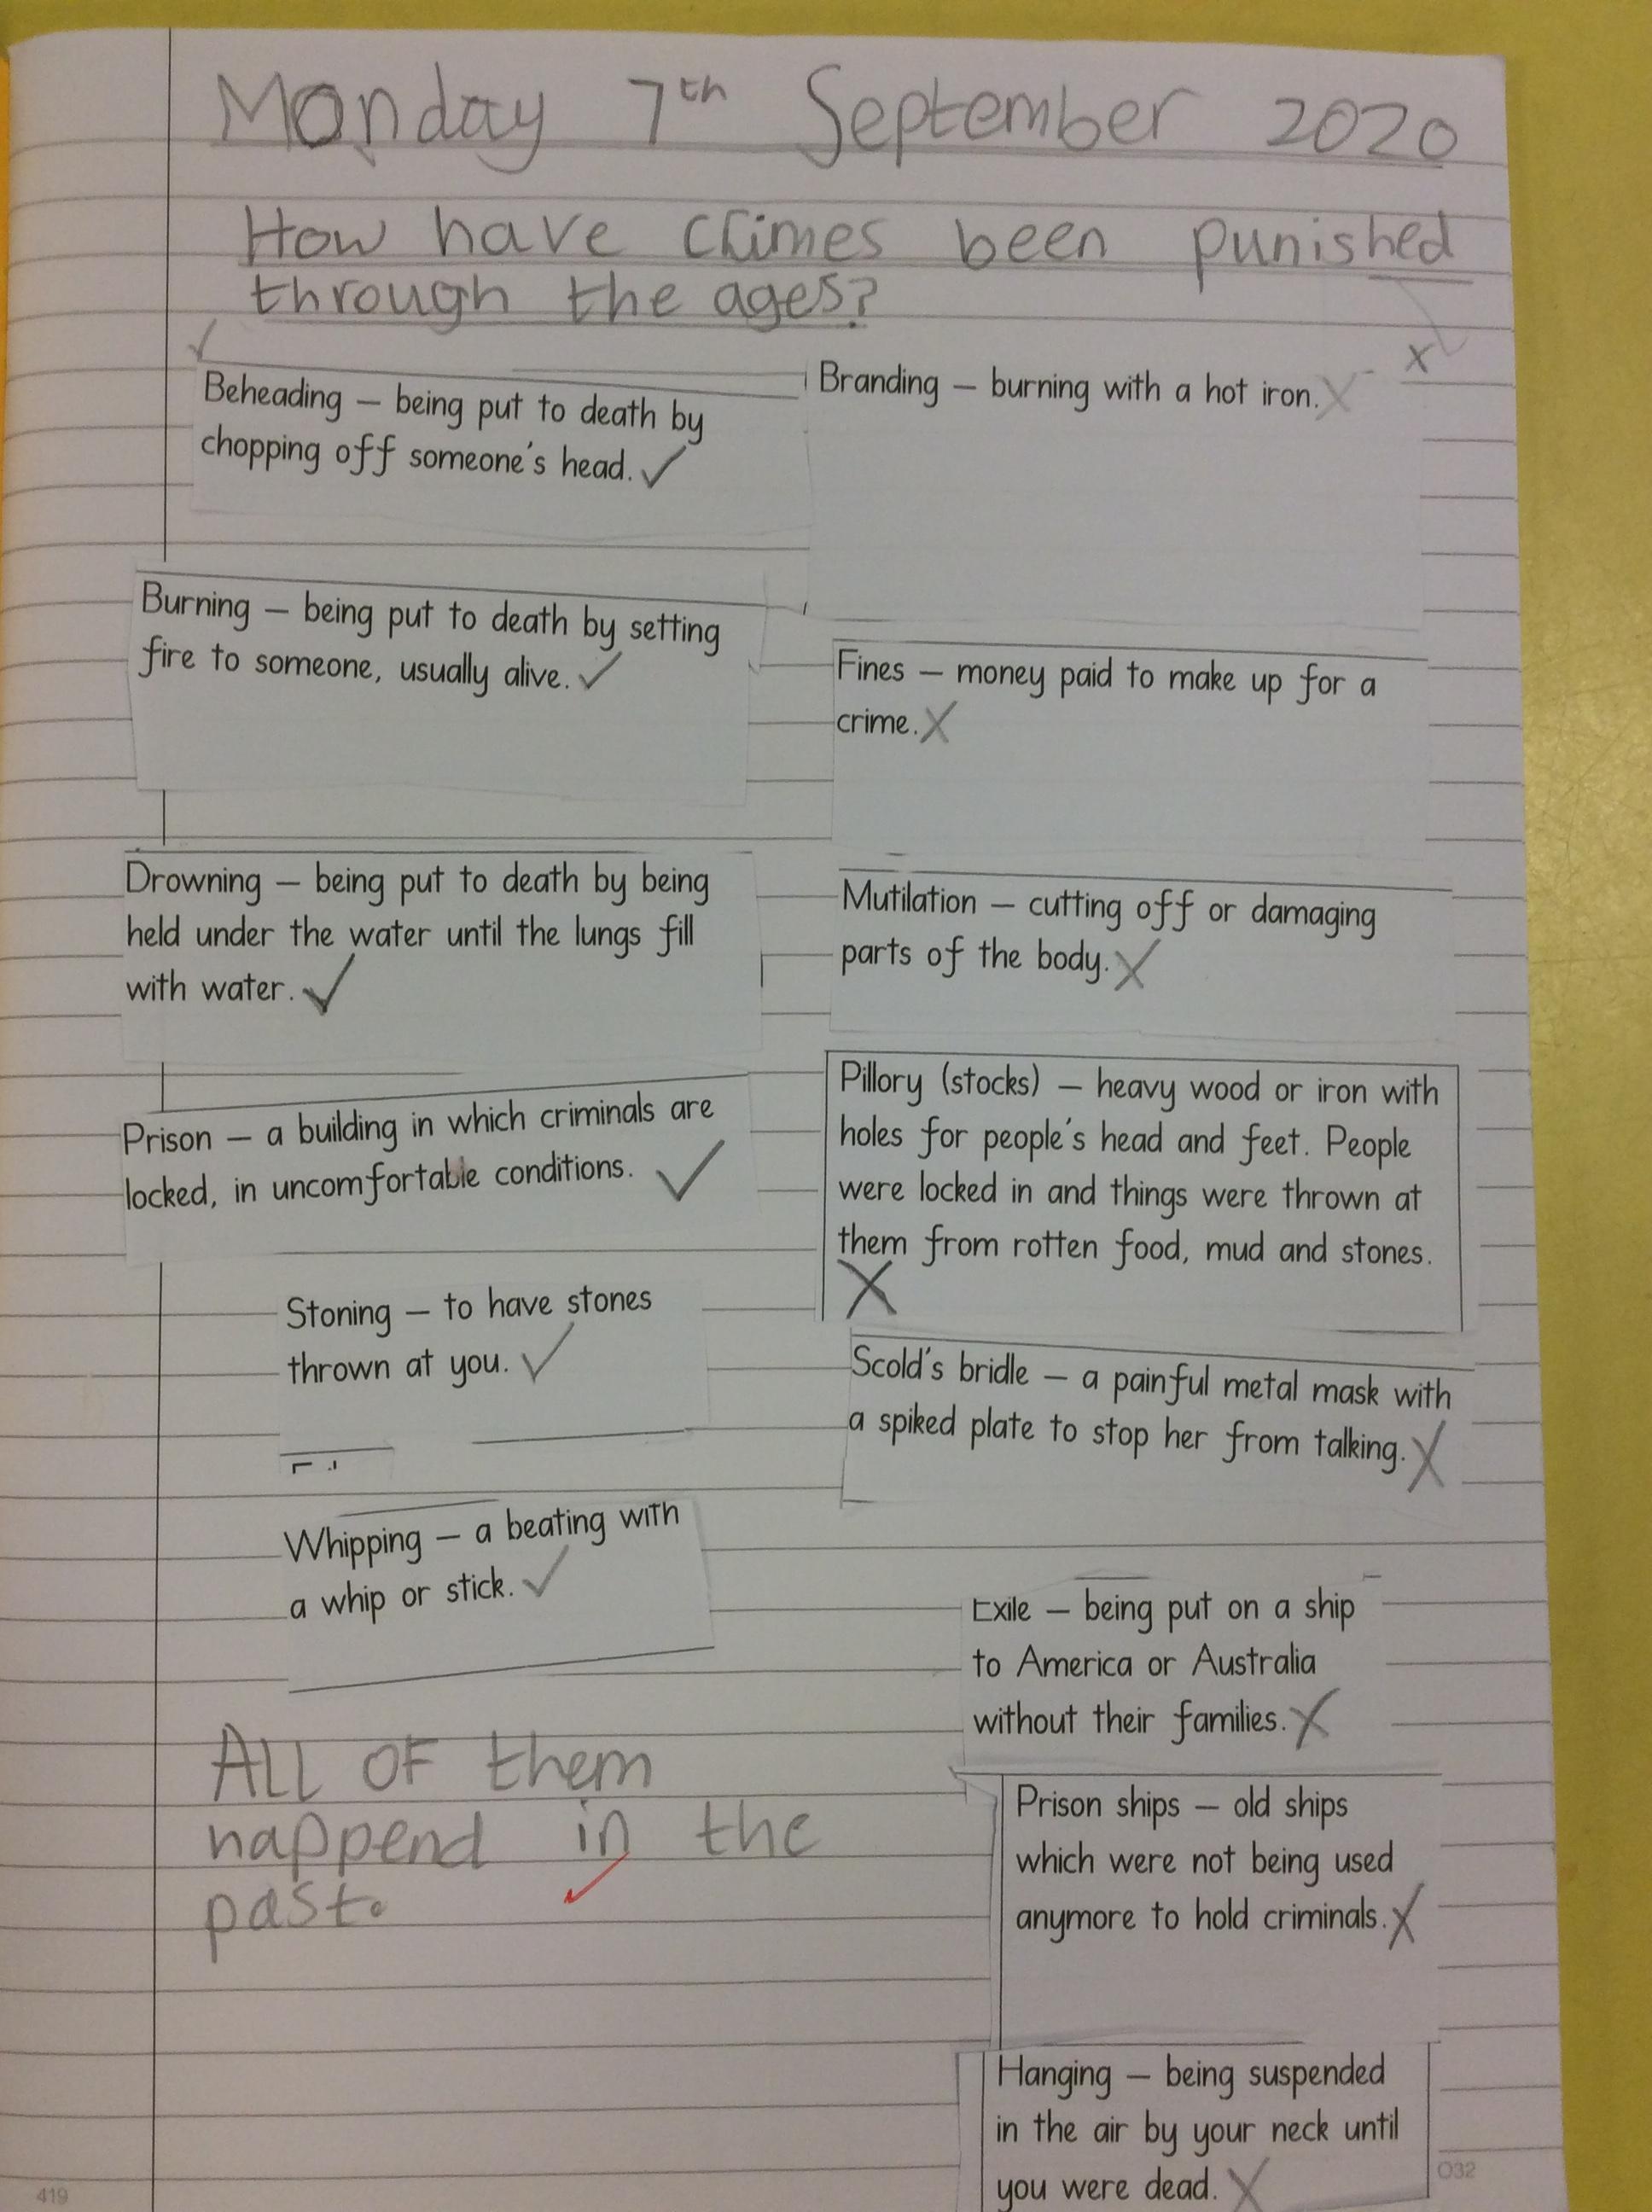 Monday 7th September 2020
How have crimes been punished
through the ages?
✓
Beheading – being put to death by
chopping off someone's head. ✓
Burning – being put to death by setting
fire to someone, usually alive. ✓
Drowning – being put to death by being
held under the water until the lungs fill
with water. ✓
Prison – a building in which criminals are
locked, in uncomfortable conditions. ✓
Stoning – to have stones
thrown at you. ✓
Whipping – a beating with
a whip or stick. ✓
ALL OF them
happend in the
past.
✓
x
Branding – burning with a hot iron. X
Fines – money paid to make up for a
crime. X
Mutilation – cutting off or damaging
parts of the body. X
Pillory (stocks) – heavy wood or iron with
holes for people's head and feet. People
were locked in and things were thrown at
them from rotten food, mud and stones.
X
Scold's bridle – a painful metal mask with
a spiked plate to stop her from talking. X
Exile – being put on a ship
to America or Australia
without their families. X
Prison ships – old ships
which were not being used
anymore to hold criminals. X
Hanging – being suspended
in the air by your neck until
you were dead. X
419
032